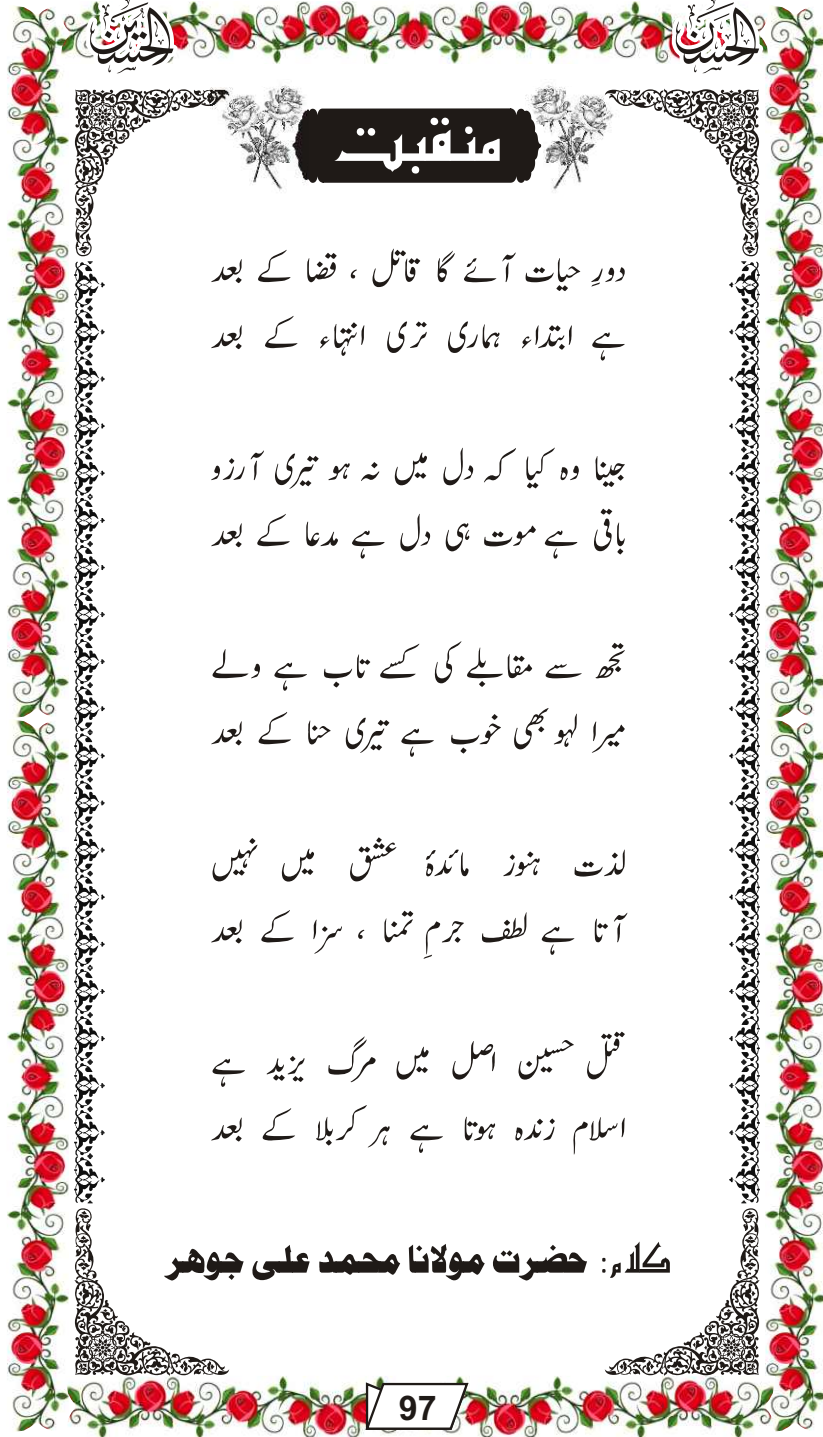 الحسین
الحسن
منقبت
دورِ حیات آئے گا قاتل ، قضا کے بعد
ہے ابتداء ہماری تری انتہاء کے بعد
جینا وہ کیا کہ دل میں نہ ہو تیری آرزو
باقی ہے موت ہی دل بے مدعا کے بعد
تجھ سے مقابلے کی کسے تاب ہے ولے
میرا لہو بھی خوب ہے تیری حنا کے بعد
لذت ہنوز مائدۂ عشق میں نہیں
آتا ہے لطف جرمِ تمنا ، سزا کے بعد
قتل حسین اصل میں مرگ یزید ہے
اسلام زندہ ہوتا ہے ہر کربلا کے بعد
کلام: حضرت مولانا محمد علی جوھر
97